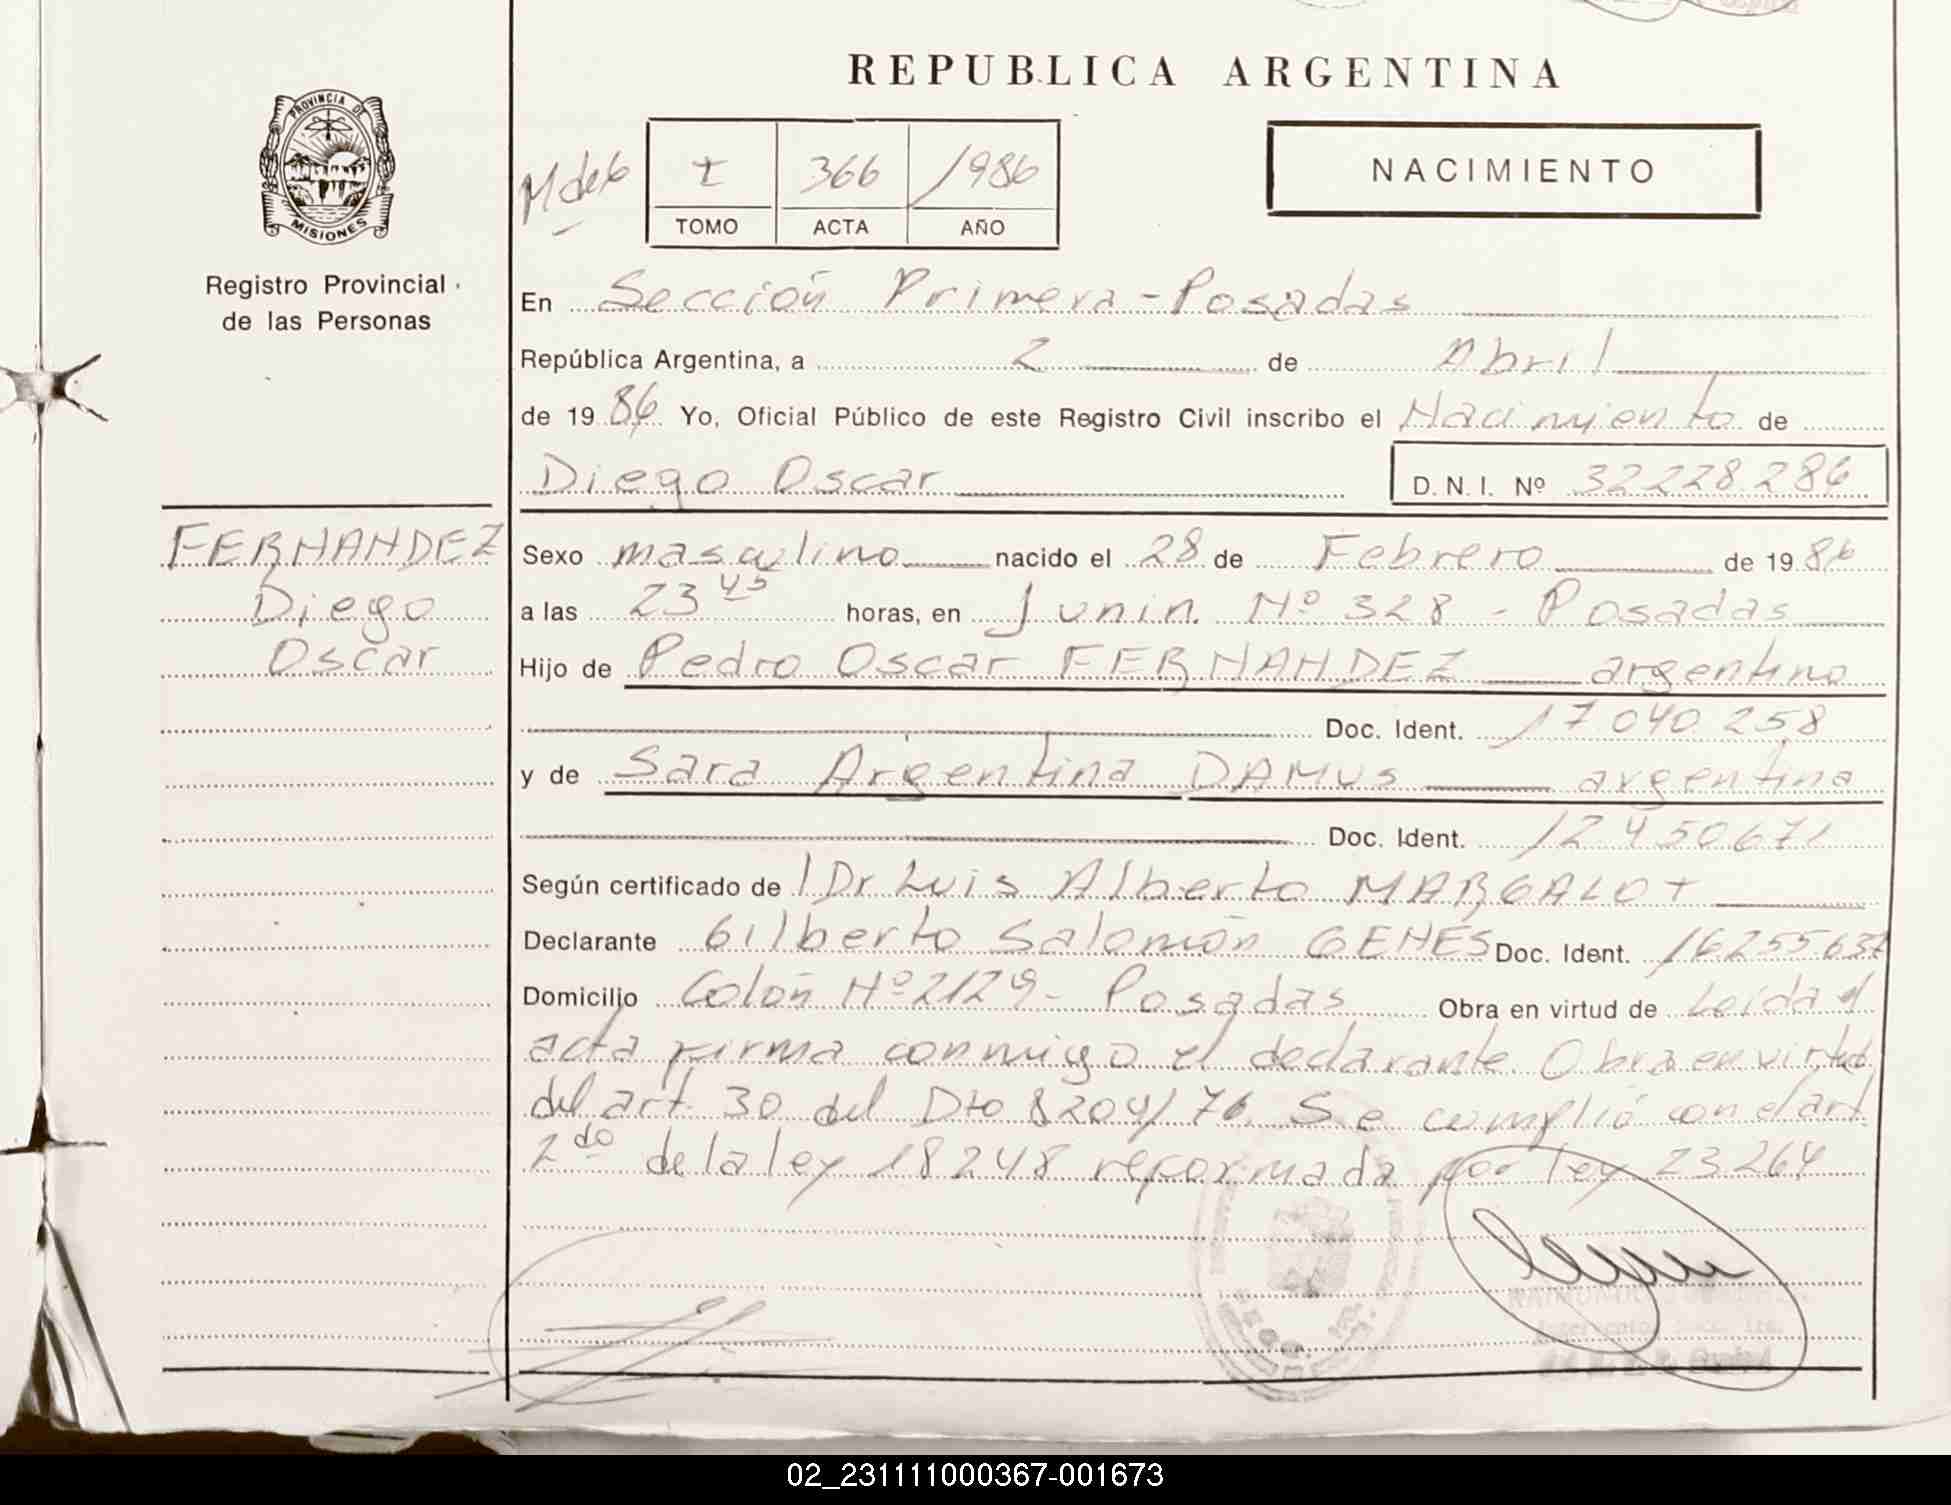 REPUBLICA ARGENTINA
PROVINCIA DE
MISIONES
Registro Provincial
de las Personas
M de 6
I 366 1986
TOMO ACTA AÑO
NACIMIENTO
En Sección Primera - Posadas
República Argentina, a 2 de Abril
de 1986 Yo, Oficial Público de este Registro Civil inscribo el Nacimiento de
Diego Oscar D.N.I. Nº 32.228.286
FERNANDEZ
Diego
Oscar
Sexo masculino nacido el 28 de Febrero de 1986
a las 23 45 horas, en Junin. Nº 328 - Posadas
Hijo de Pedro Oscar FERNANDEZ argentino
Doc. Ident. 17.040.258
y de Sara Argentina DAMUS argentina
Doc. Ident. 12.450.671
Según certificado de l Dr Luis Alberto MARGALOT
Declarante Gilberto Salomón GENES Doc. Ident. 16.255.637
Domicilio Colón Nº 2129 - Posadas Obra en virtud de Leida el
acta firma conmigo el declarante Obra en virtud
del art. 30 del Dto 8204/76. Se cumplió con el art
2do de la ley 18248 reformada por ley 23.264
02_231111000367-001673